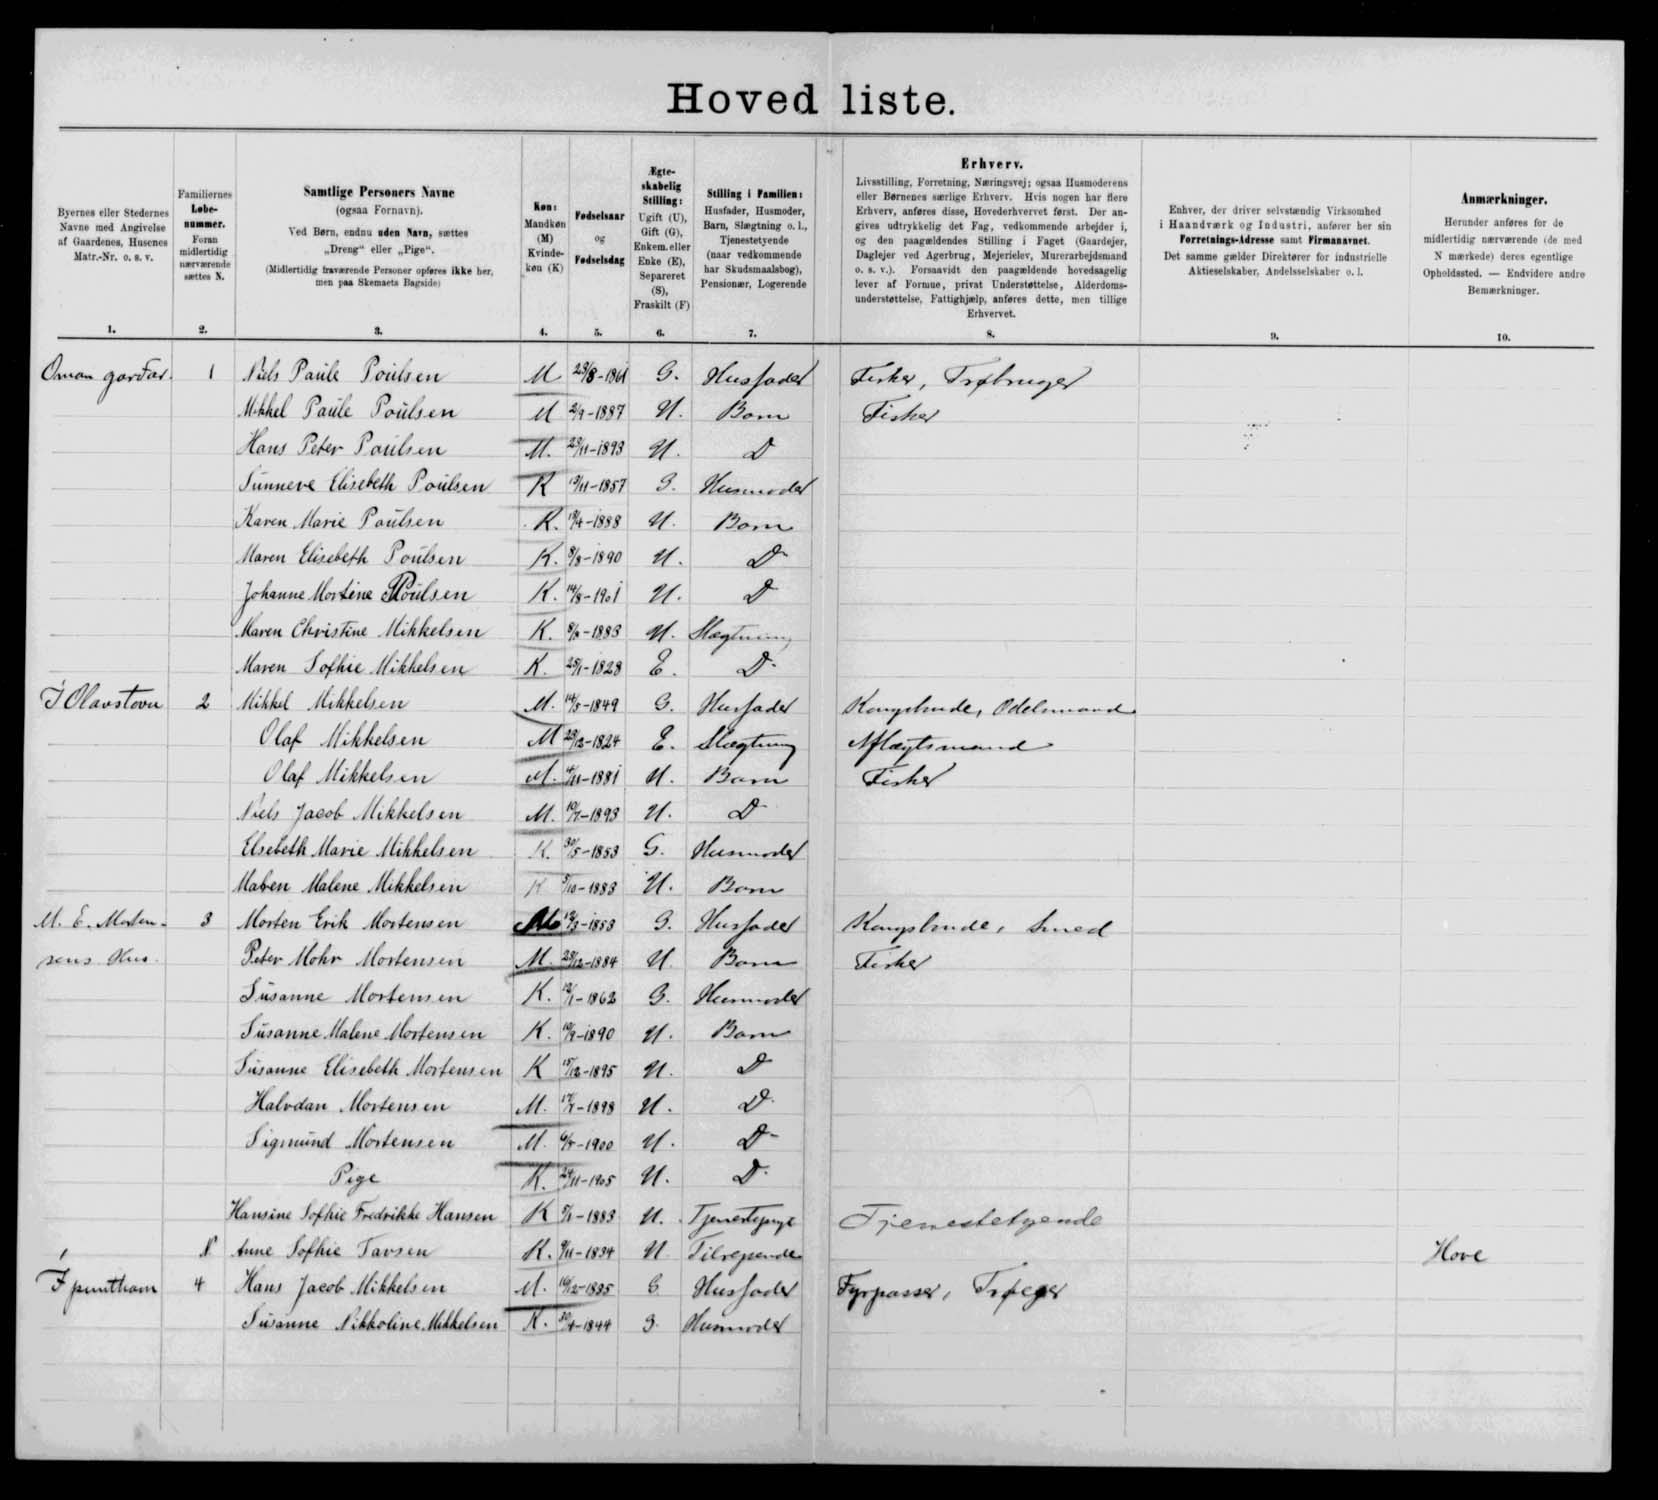 Hoved liste.
Byernes eller Stedernes Navne med Angivelse af Gaardenes, Husenes Matr.-Nr. o. s. v.
1.
Familiernes Løbe-nummer. Foran midlertidig nærværende sættes N.
2.
Samtlige Personers Navne
(ogsaa Fornavn).
Ved Børn, endnu uden Navn, sættes „Dreng“ eller „Pige“.
(Midlertidig fraværende Personer opføres ikke her, men paa Skemaets Bagside)
3.
Køn: Mandkøn (M) Kvinde-køn (K)
4.
Fødselsaar og Fødselsdag
5.
Ægte-skabelig Stilling: Ugift (U), Gift (G), Enkem. eller Enke (E), Separeret (S), Fraskilt (F)
6.
Stilling i Familien: Husfader, Husmoder, Barn, Slægtning o. l., Tjenestetyende (naar vedkommende har Skudsmaalsbog), Pensionær, Logerende
7.
Erhverv.
Livsstilling, Forretning, Næringsvej; ogsaa Husmoderens eller Børnenes særlige Erhverv. Hvis nogen har flere Erhverv, anføres disse, Hovederhvervet først. Der angives udtrykkelig det Fag, vedkommende arbejder i, og den paagældendes Stilling i Faget (Gaardejer, Daglejer ved Agerbrug, Mejerielev, Murerarbejdsmand o. s. v.). Forsaavidt den paagældende hovedsagelig lever af Formue, privat Understøttelse, Alderdoms-understøttelse, Fattighjælp, anføres dette, men tillige Erhvervet.
8.
Enhver, der driver selvstændig Virksomhed i Haandværk og Industri, anfører her sin Forretnings-Adresse samt Firmanavnet. Det samme gælder Direktører for industrielle Aktieselskaber, Andelsselskaber o. l.
9.
Anmærkninger.
Herunder anføres for de midlertidig nærværende (de med N mærkede) deres egentlige Opholdssted. — Endvidere andre Bemærkninger.
10.
Oman garðar. 1 Niels Paule Poulsen M 23/8-1861 G. Husfader Fisker, Trøbruger
Mikkel Paule Poulsen M 2/9-1887 U. Barn Fisker
Hans Peter Poulsen M. 23/11-1893 U. D
Sunneve Elisebeth Poulsen K /11-1857 G. Husmoder
Karen Marie Poulsen K. /4-1888 U. Barn
Maren Elisebeth Poulsen K. 8/8-1890 U. D
Johanne Mortine Poulsen K. 14/8-1901 U. D
Maren Christine Mikkelsen K. 1883 U. Slægtning
Maren Sofhie Mikkelsen K. 28/1-1828 E. D
I Olavstovu 2 Mikkel Mikkelsen M. 14/5-1849 G. Husfader Kongsbonde, Odelsmand
Olaf Mikkelsen M 28/12-1824 E. Slægtning Aflægtsmand
Olaf Mikkelsen M. 4/11-1881 U. Barn Fisker
Niels Jacob Mikkelsen M. 10/7-1893 U. D
Elsebeth Marie Mikkelsen K. 30/5-1853 G. Husmoder
Maren Malene Mikkelsen K 5/10-1883 U. Barn
M. E. Morten- 3 Morten Erik Mortensen M 12/3-1853 G. Husfader Kongsbonde, Smed
sens Hus. Peter Mohr Mortensen M. 28/12-1884 U. Barn Fisker
Susanne Mortensen K. 12/1-1862 G. Husmoder
Susanne Malene Mortensen K. 10/9-1890 U. Barn
Susanne Elisebeth Mortensen K 15/12-1895 U. D
Halvdan Mortensen M. 17/7-1898 U. D.
Sigmund Mortensen M. 6/8-1900 U. D
Pige K. 24/11-1905 U. D.
Hansine Sofhie Fredrikke Hansen K 7/1-1883 U. Tjenestepige Tjenestetyende
N Anne Sofhie Tavsen K. 9/11-1834 U Tilrejsende Hove
4 Hans Jacob Mikkelsen M. 10/12-1835 G Husfader Fyrpasser, Trøejer
Susanne Nikkoline Mikkelsen K. 30/4-1844 G. Husmoder